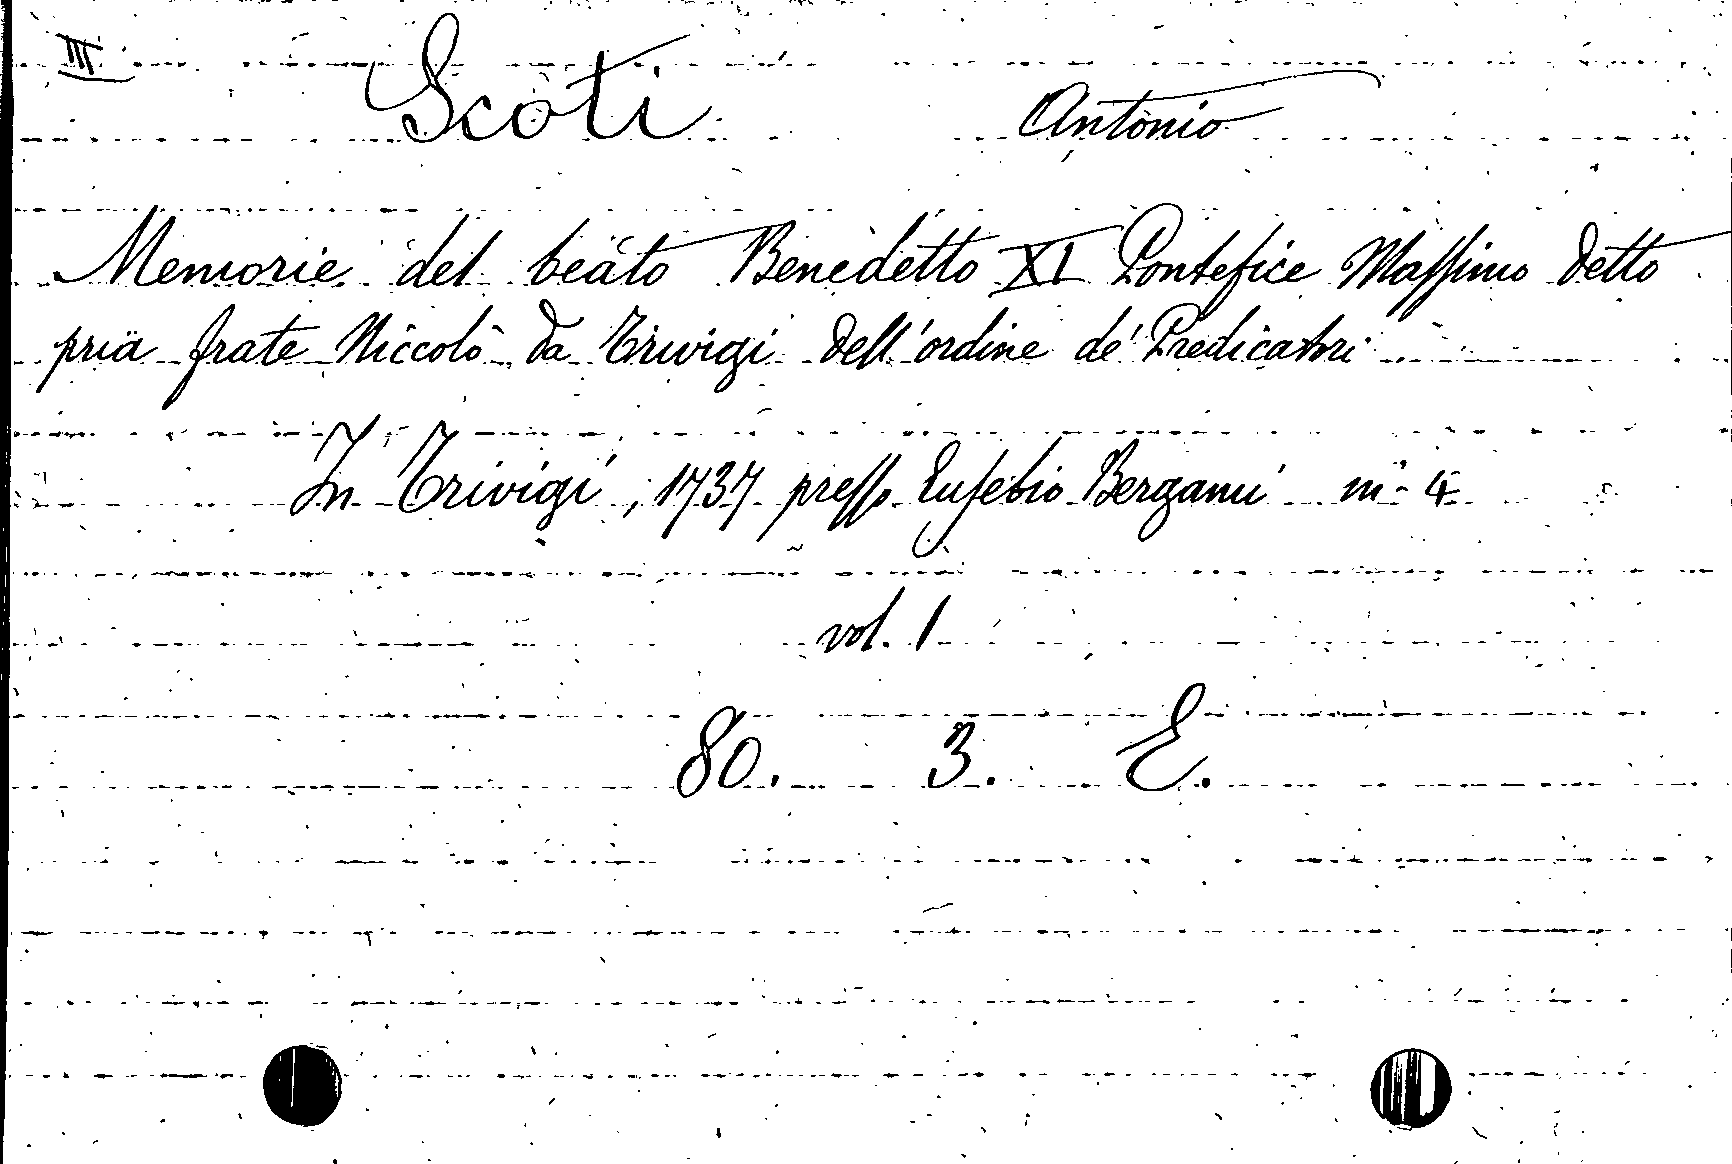 III
Scoti Antonio
Memorie del beato Benedetto XI Pontefice Massimo detto
pria frate Niccolò da Trivigi dell'ordine de' Predicatori
In Trivigi, 1737 presso Eusebio Bergami in 4
vol. 1
80. 3. E.